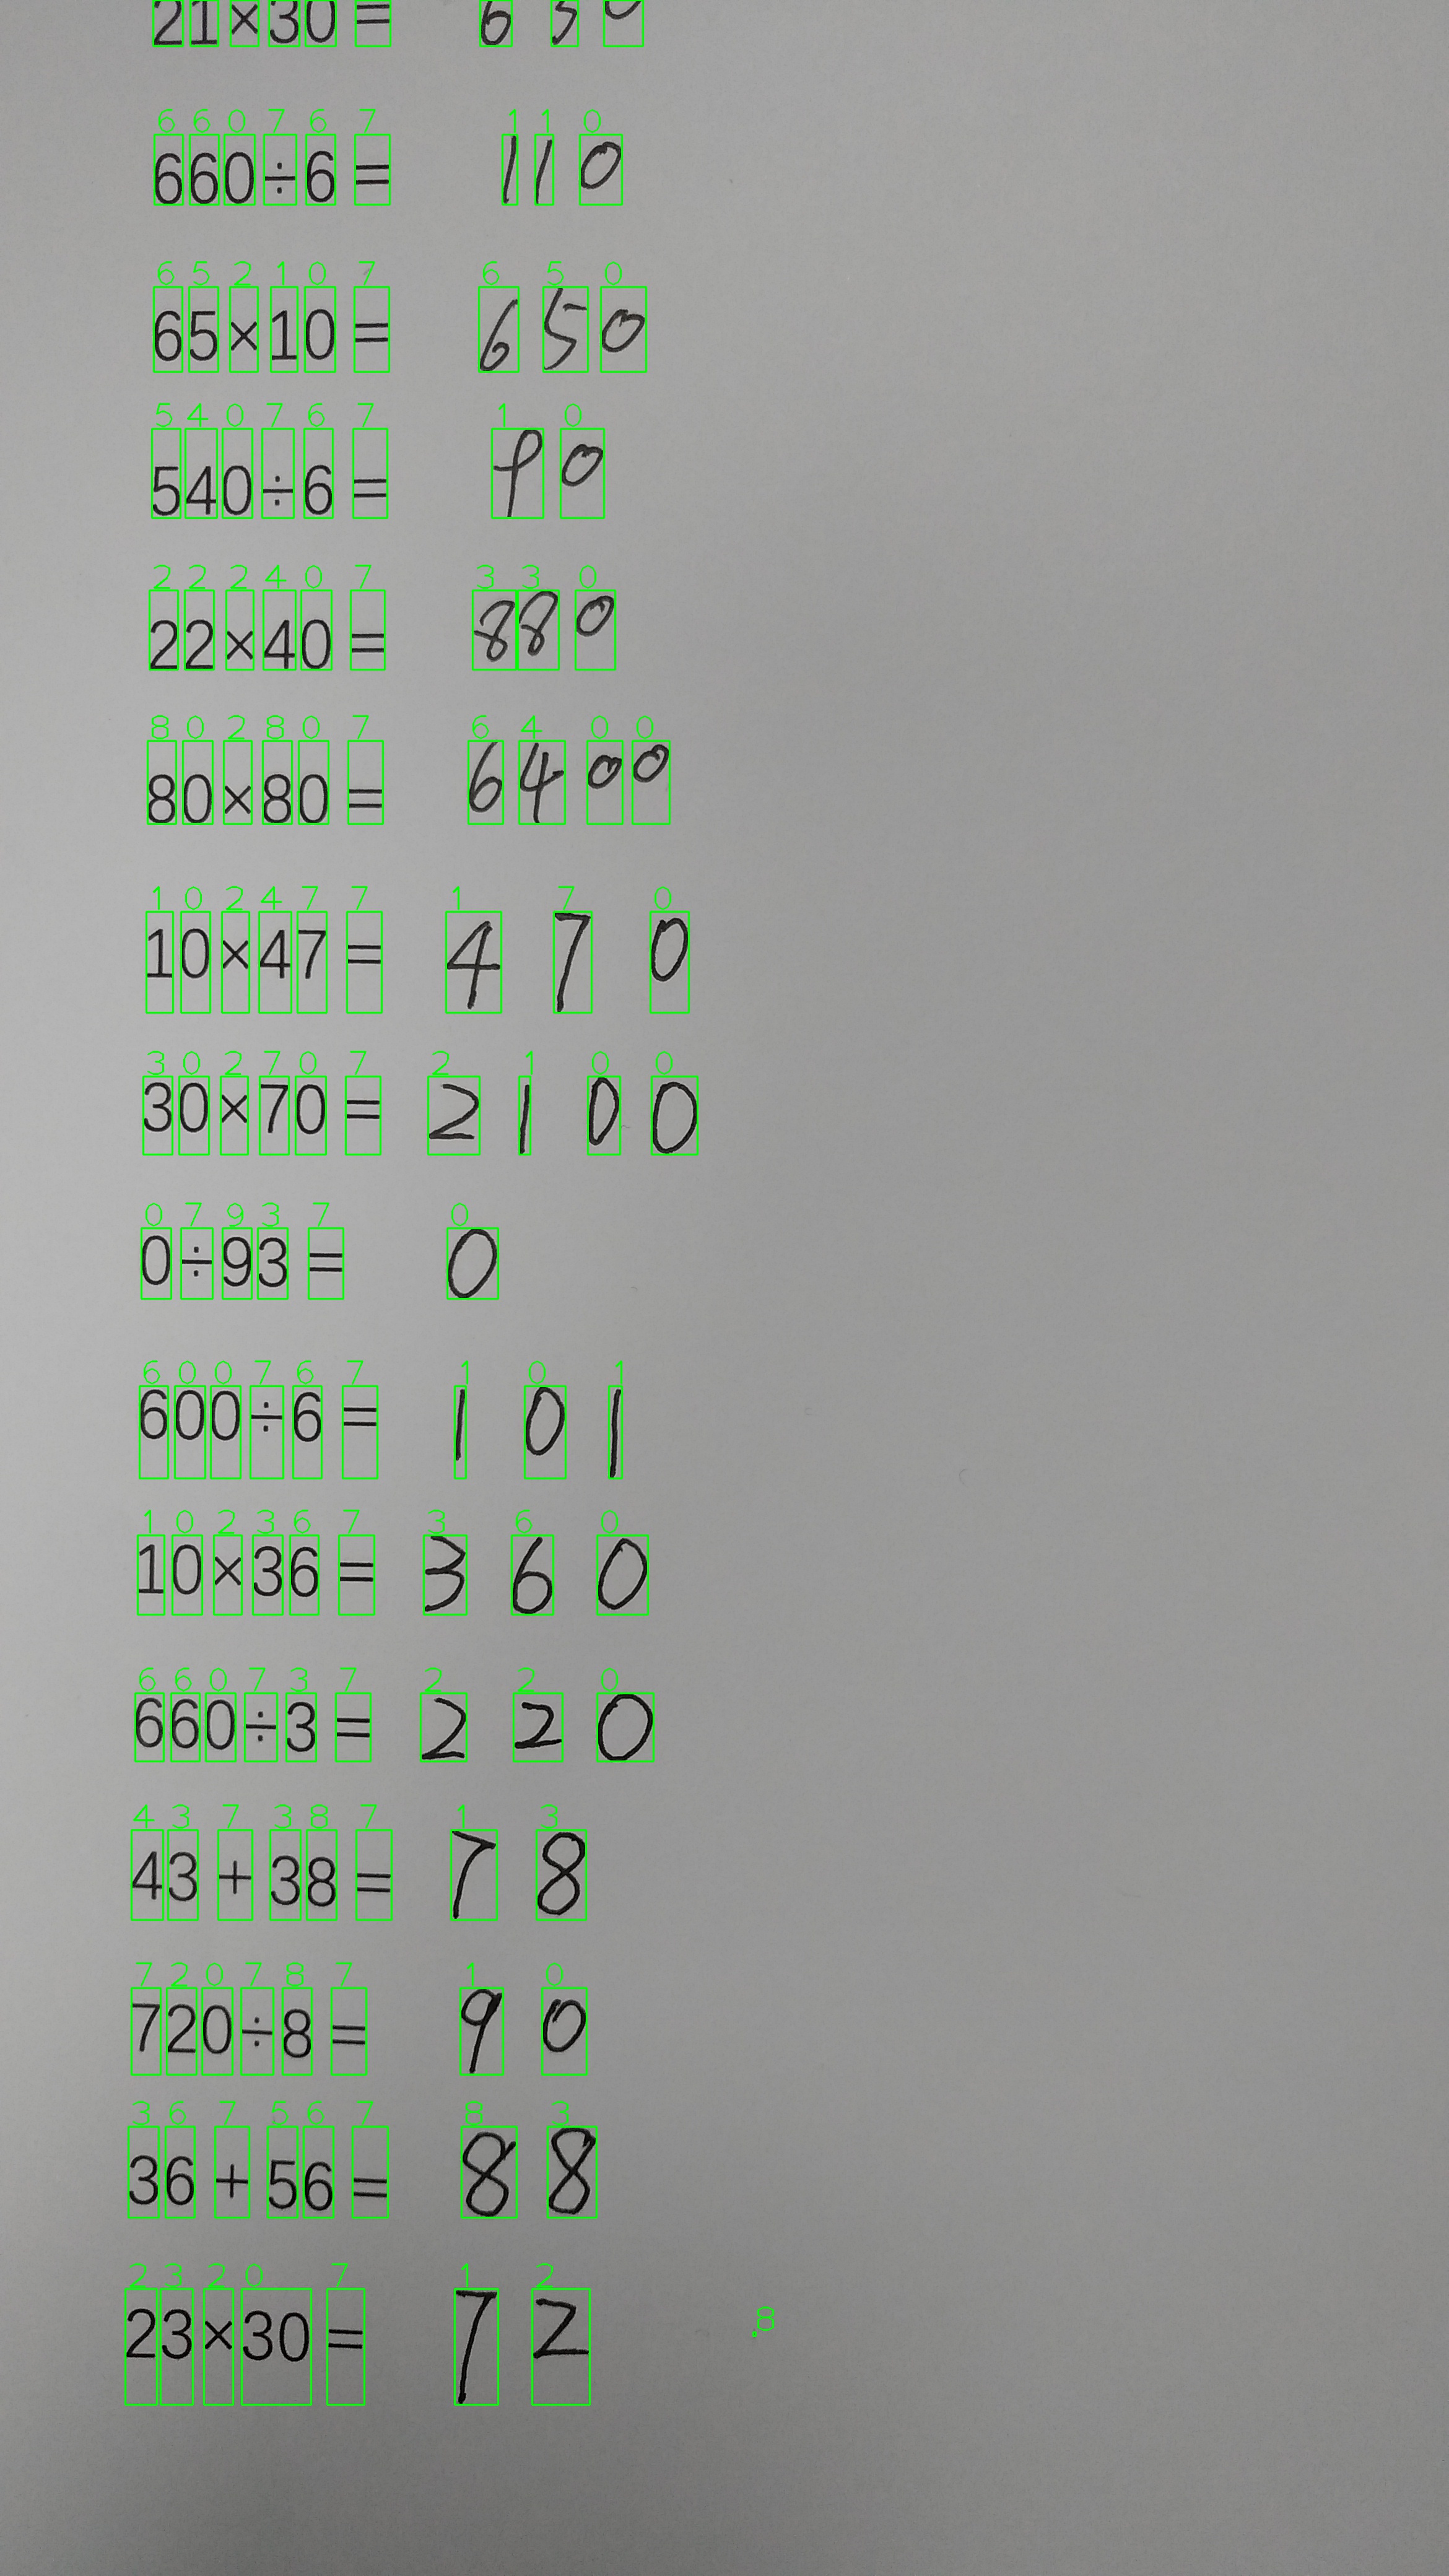 21×30=
6 6 0 7 6 7 1 1 0
660÷6= 110
6 5 2 1 0 7 6 5 0
65×10= 650
5 4 0 7 6 7 1 0
540÷6= 90
2 2 2 4 0 7 3 3 0
22×40= 880
8 0 2 8 0 7 6 4 0 0
80×80= 6400
1 0 2 4 7 7 1 7 0
10×47= 470
3 0 2 7 0 7 2 1 0 0
30×70= 2100
0 7 9 3 7 0
0÷93= 0
6 0 0 7 6 7 1 0 1
600÷6= 101
1 0 2 3 6 7 3 6 0
10×36= 360
6 6 0 7 3 7 2 2 0
660÷3= 220
4 3 7 3 8 7 1 3
43+38= 78
7 2 0 7 8 7 1 0
720÷8= 90
3 6 7 5 6 7 8 3
36+56= 88
2 3 2 0 7 1 2
23×30= 72
8